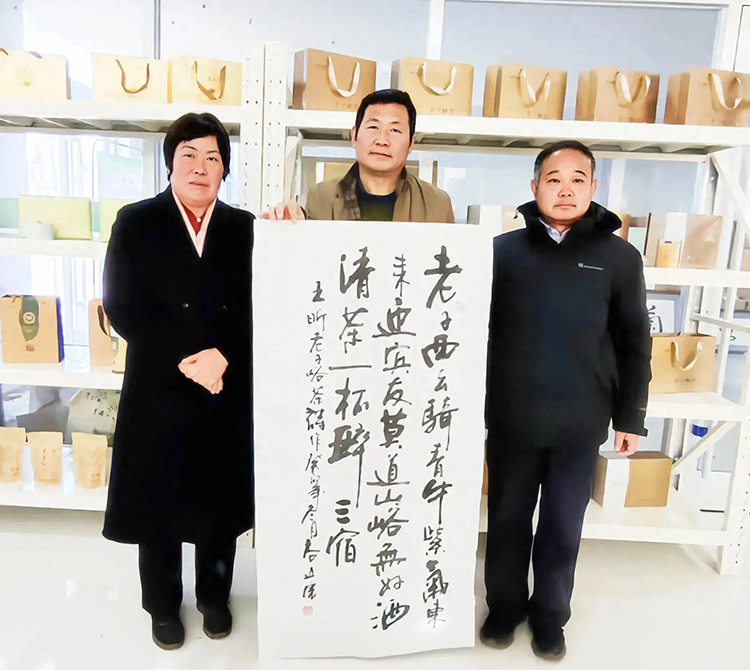 老子西去騎青牛紫氣東
来迎賓友莫道山峪無好酒
清茶一杯醉三宿
王昕老子峪茶詩作癸卯年月